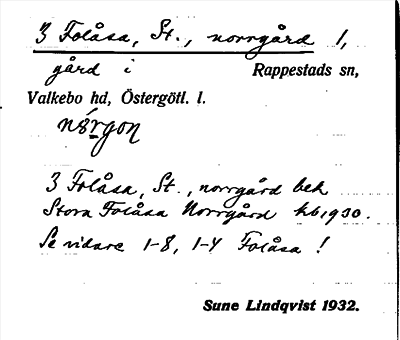 3 Folåsa, St., norrgård 1,
gård i Rappestads sn,
Valkebo hd, Östergötl. l.
nørgon
3 Folåsa, St., norrgård bek
Stora Folåsa Norrgård kb1930.
Se vidare 1-8, 1-4 Folåsa!
Sune Lindqvist 1932.